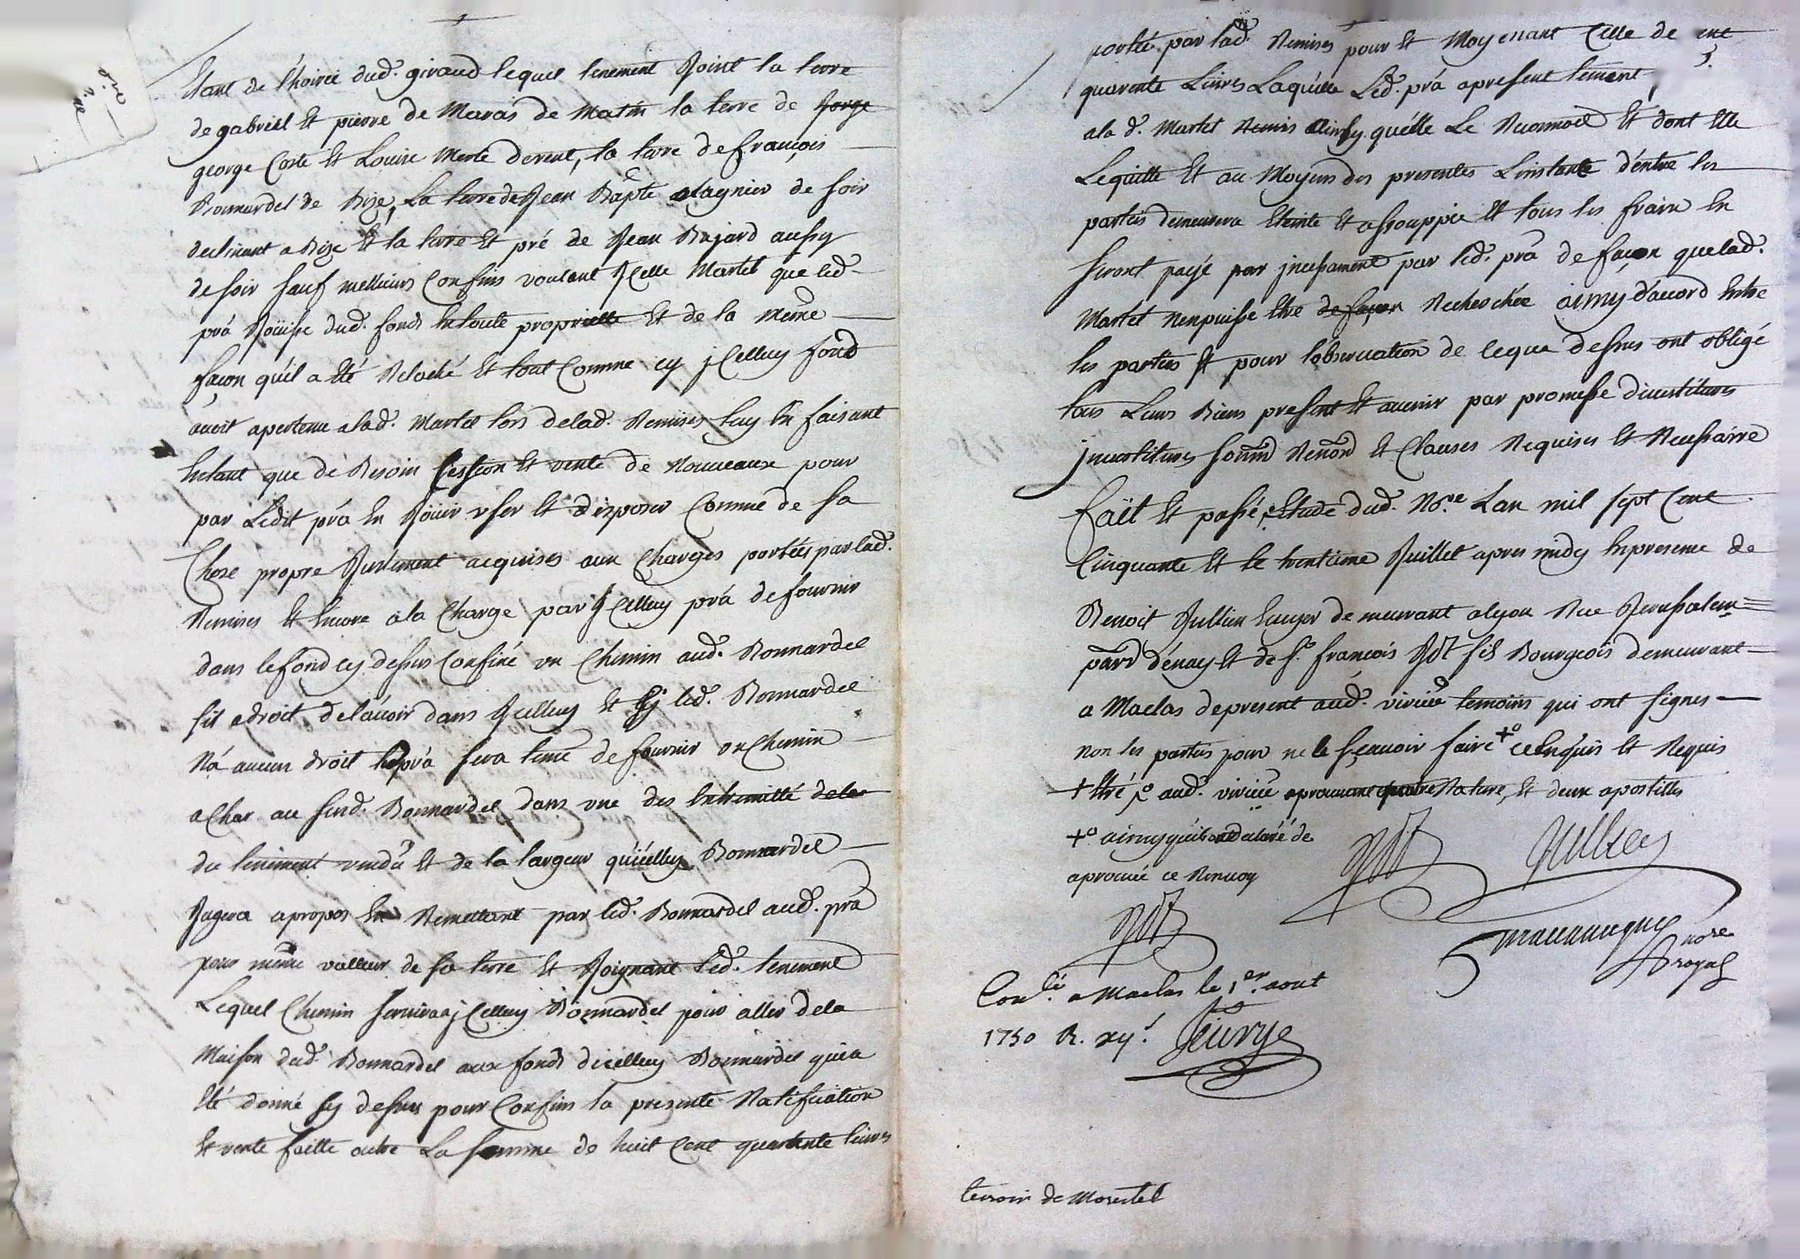 Etant de l'hoirie dud. giraud lequel tenement Joint la terre
de gabriel Et pierre de Maras de Matin la terre de Jorge
george Coste Et Louise Merle devent, la terre de françois
Bonnardel de Bize, La terre de Jean Bapte Lagnier de soir
declinant a Bize Et la terre Et pré de Jean Bajard aussy
de soir sauf meilleurs Confins voulant Jcelle Martel que led.
prá Joüisse dud. fond En toute proprietté Et de la même
façon qu'il a Eté Relaché Et tout Comme cy jCelluy fond
avoit apertenu a lad. Martel lors de lad. Remises luy En faisant
Entant que de Besoin Cession Et vente de Nouveaux pour
par Ledit prá En Joüir user Et disposer Comme de sa
Chose propre Justement acquises aux Charges portées par lad.
Remises Et Encore a la Charge par JCelluy prá de fournir
dans le fond cy dessus Confiné un Chemin aud. Bonnardel
sil a droit de l'avoir dans Jcelluy Et sy led. Bonnardel
Na aucun droit le prá sera tenu de fournir un Chemin
a Char au susd. Bonnardel dans une des Extremitté de la
du tenement vendu Et de la largeur qu'icelluy Bonnardel
Jugera apropos En Remettant par led. Bonnardel aud. prá
pour même valleur de sa terre Et Joignant led. tenement
Lequel Chemin servira a jCelluy Bonnardel pour aller de la
Maison dud. Bonnardel aux fonds dicelluy Bonnardel qui a
Eté donné cy dessus pour Confins la presente Ratification
Et vente faitte outre La somme de huit Cent quarante livres
portée par lad. Remises pour Et Moyenant Celle de
quarante Livres Laquelle Led. prá a presentement
a la d. Martel Remis ainsy qu'elle Le Reconnoit Et dont Elle
Le quitte Et au Moyen des presentes Linstance d'entre les
parties demeurera Eteinte Et assouppie Et tous les fraix En
seront payé par jncessament par led. prá de façon que lad.
Martel N'en puisse Etre de façon Recherchée ainsy d'accord Entre
les parties Et pour l'observation de ce que dessus ont obligé
tous Leurs Biens present Et avenir par promesse divestitures
jnvestitures soûm Renon Et Clauses Requises Et Necessaire
fait Et passé Etude dud. No.re Lan mil sept Cent
Cinquante Et le trentieme Juillet apres midy En presence de
Benoit Jullien Ecuyer demeurant a lyon Rue Jerusalem
parr d'enay Et de sr. françois Jot fils Bourgeois demeurant
a Maclas de present aud. virieu temoins qui ont signes
non les parties pour ne le sçavoir faire +o ce Enquis Et Requis
+ Etré po aud. virieu aprouvant quatre Rature, Et deux apostilles
+o ainsy qu'ils ont declaré de
aprouvé ce Renvoy
Jot
Jullien
Jot
nore
royal
Con.lé a Maclas le 1er. aout
1750 R. xy s.
terroir de Morestel